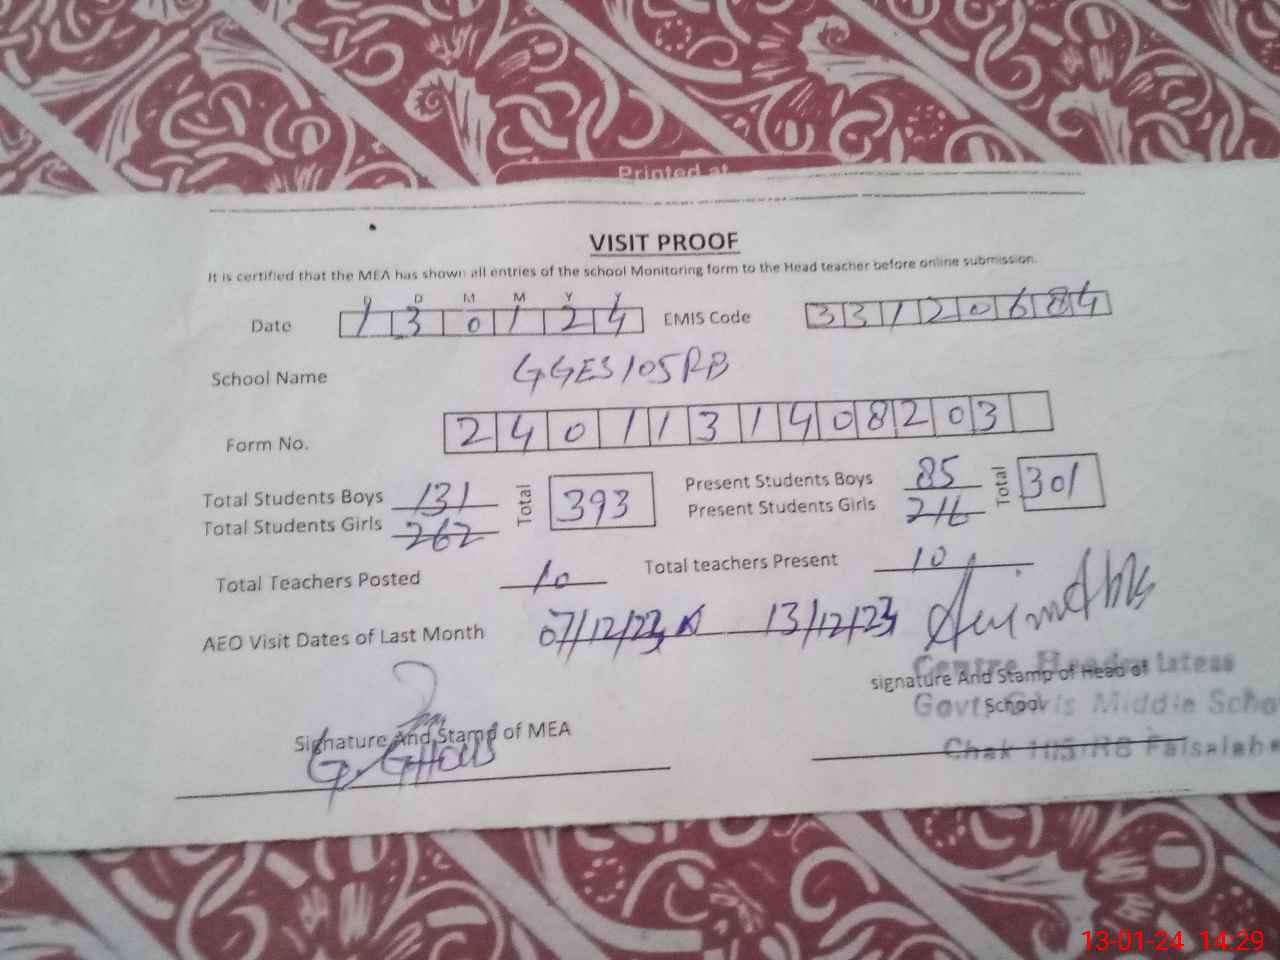 Printed at
VISIT PROOF
It is certified that the MEA has shown all entries of the school Monitoring form to the Head teacher before online submission.
D D M M Y Y
Date 1 3 0 1 2 4 EMIS Code 3 3 1 2 0 6 8 4
School Name GGES 105 RB
Form No. 2 4 0 1 1 3 1 4 0 8 2 0 3
Total Students Boys 131 Total 393 Present Students Boys 85 Total 301
Total Students Girls 262 Present Students Girls 216
Total Teachers Posted 10 Total teachers Present 10
AEO Visit Dates of Last Month 07/12/23, 13/12/23
signature And Stamp of Head of
School
Govt Girls Middle Scho
Chak 105-RB Faisalaba
Signature And Stamp of MEA
G. GHOUS
13-01-24 14:29